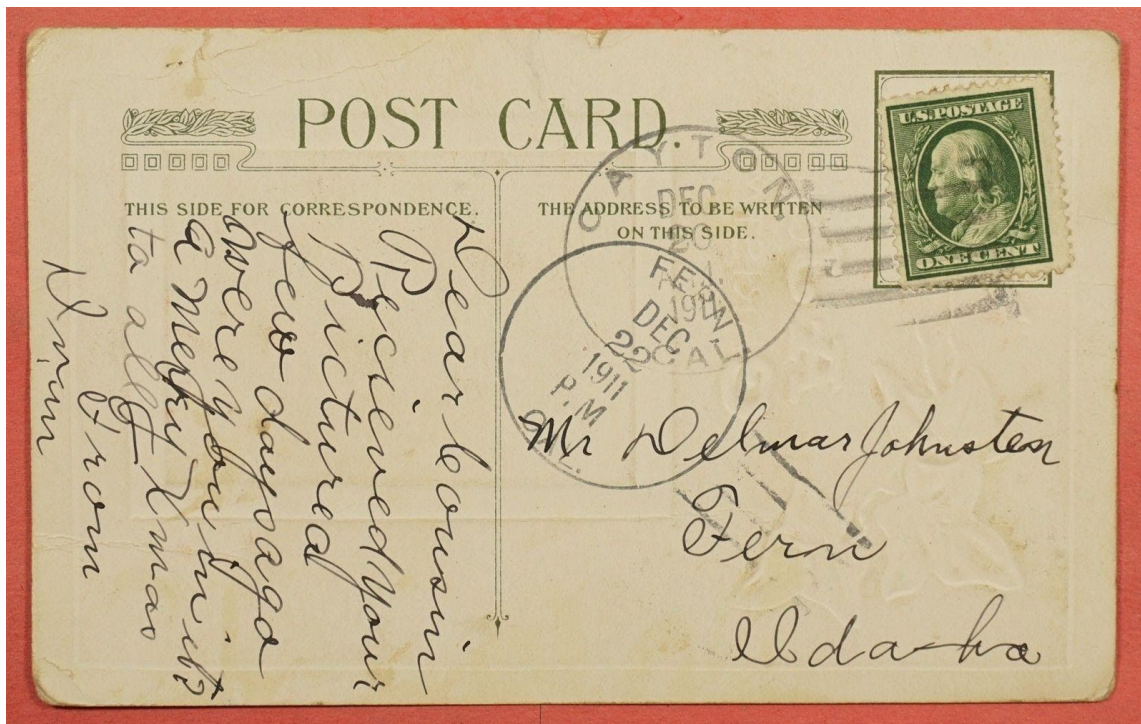 POST CARD.
THIS SIDE FOR CORRESPONDENCE.
THE ADDRESS TO BE WRITTEN
ON THIS SIDE.
U.S. POSTAGE
ONE CENT
CAYTON
DEC
20
CAL.
FERN
DEC
22
1911
P.M
Dear Cousin
Recieved your
Pictures
few days ago
were you in it
a Merry Xmas
to all
From
Mr Delmar Johnsten
Fern
Idaho